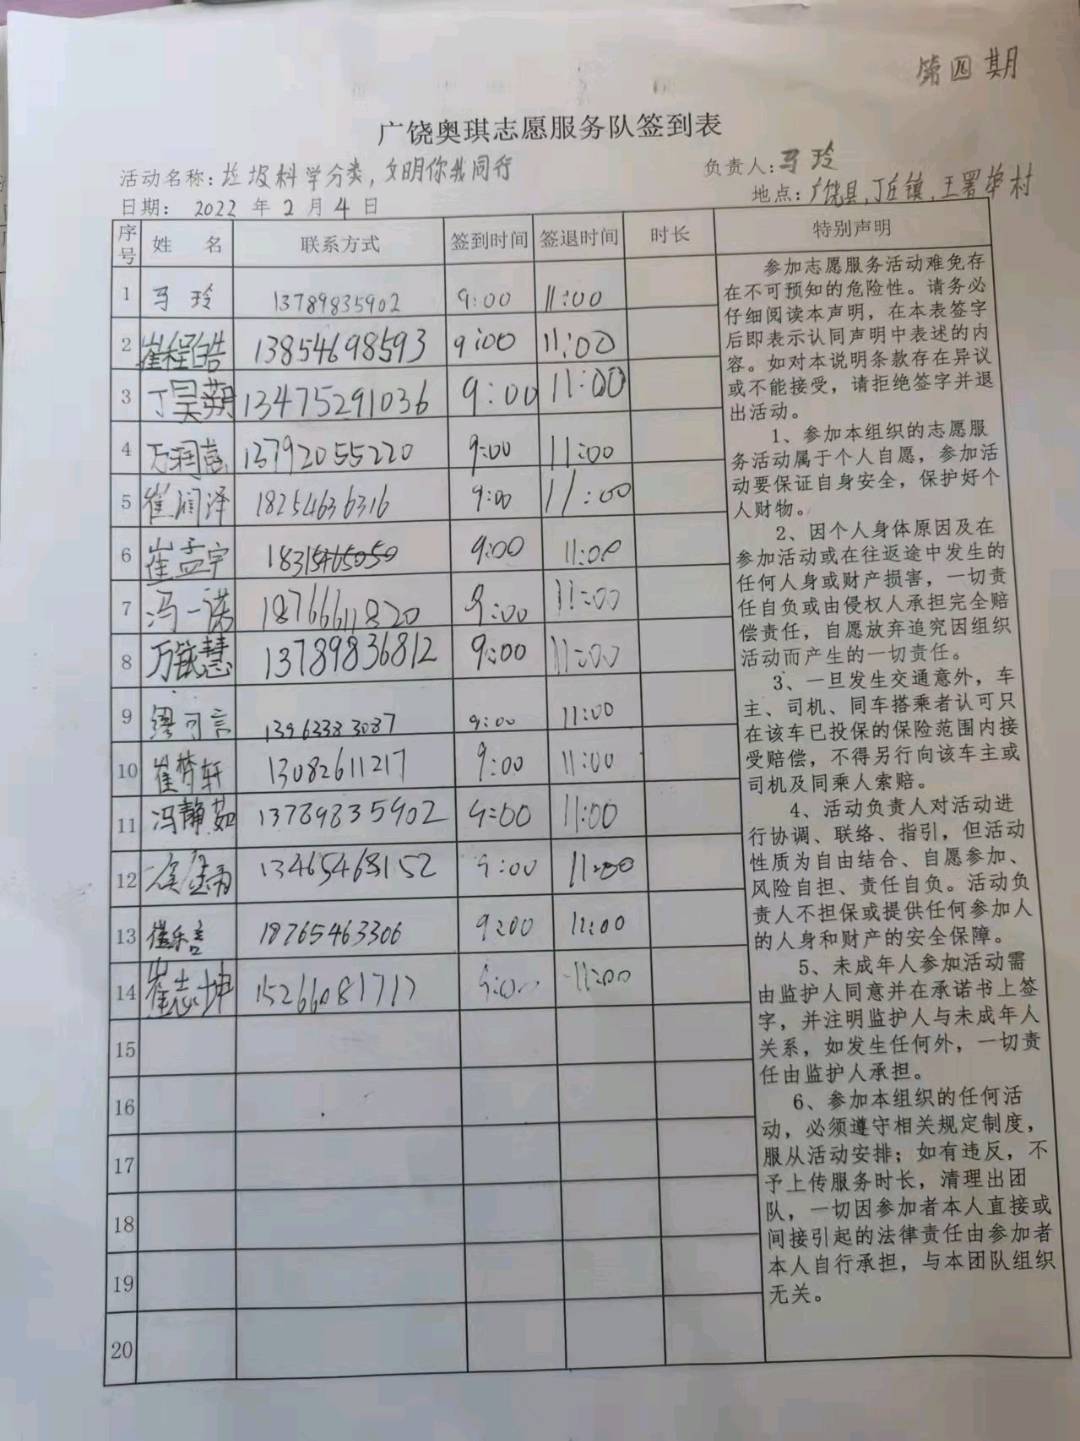 第四期
广饶奥琪志愿服务队签到表
活动名称：垃圾科学分类，文明你我同行 负责人：马玲
日期： 2022 年 2 月 4 日 地点：广饶县，丁庄镇，王署埠村
序号 姓 名 联系方式 签到时间 签退时间 时长 特别声明
1 马玲 13789835902 9:00 11:00
2 崔程皓 13854698593 9:00 11:00
3 丁昊蒴 13475291036 9:00 11:00
4 万润 13792055220 9:00 11:00
5 崔润泽 18254636316 9:00 11:00
6 崔孟宇 18315465050 9:00 11:00
7 冯一诺 18766611820 9:00 11:00
8 万敏慧 13789836812 9:00 11:00
9 可言 13963383087 9:00 11:00
10 崔梦轩 13082611217 9:00 11:00
11 冯静茹 13789835902 9:00 11:00
12 13465468152 9:00 11:00
13 崔乐言 18765463306 9:00 11:00
14 崔志坤 15266081717 9:00 11:00
15
16
17
18
19
20
参加志愿服务活动难免存
在不可预知的危险性。请务必
仔细阅读本声明，在本表签字
后即表示认同声明中表述的内
容。如对本说明条款存在异议
或不能接受，请拒绝签字并退
出活动。
1、参加本组织的志愿服
务活动属于个人自愿，参加活
动要保证自身安全，保护好个
人财物。
2、因个人身体原因及在
参加活动或在往返途中发生的
任何人身或财产损害，一切责
任自负或由侵权人承担完全赔
偿责任，自愿放弃追究因组织
活动而产生的一切责任。
3、一旦发生交通意外，车
主、司机、同车搭乘者认可只
在该车已投保的保险范围内接
受赔偿，不得另行向该车主或
司机及同乘人索赔。
4、活动负责人对活动进
行协调、联络、指引，但活动
性质为自由结合、自愿参加、
风险自担、责任自负。活动负
责人不担保或提供任何参加人
的人身和财产的安全保障。
5、未成年人参加活动需
由监护人同意并在承诺书上签
字，并注明监护人与未成年人
关系，如发生任何外，一切责
任由监护人承担。
6、参加本组织的任何活
动，必须遵守相关规定制度，
服从活动安排；如有违反，不
予上传服务时长，清理出团
队，一切因参加者本人直接或
间接引起的法律责任由参加者
本人自行承担，与本团队组织
无关。